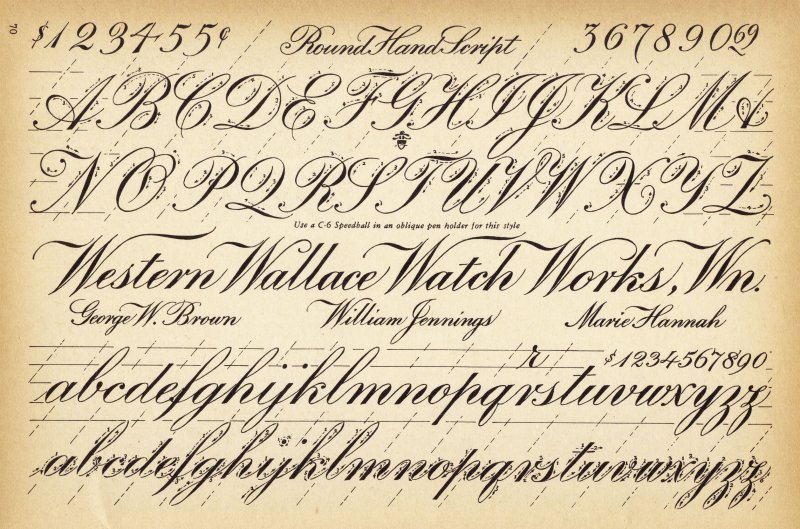 70
$1234557¢ Round Hand Script 36789069
ABCDEFGHIJKLM&
NOPQRSTUVWXYZ
Use a C-6 Speedball in an oblique pen holder for this style
Western Wallace Watch Works, Wn.
George W. Brown William Jennings Marie Hannah
r $1234567890
abcdefghijklmnopqrstuvwxyzz
abcdefghijklmnopqrstuvwxyzz